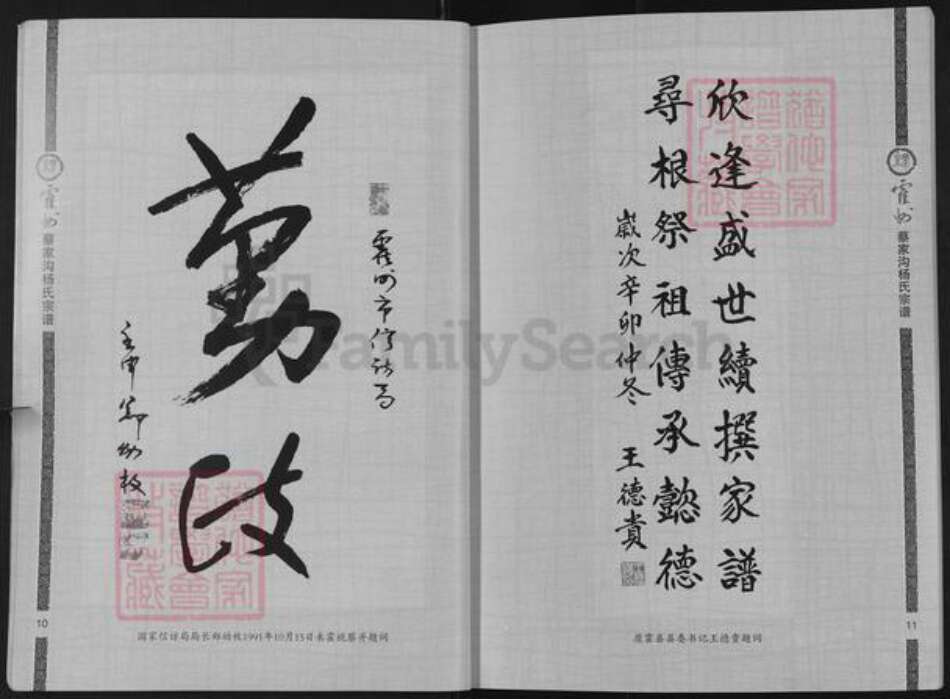 欣逢盛世續撰家譜
尋根祭祖傳承懿德
歲次辛卯仲冬 王德貴
原霍县县委书记王德贵题词
霍州蔡家沟杨氏宗谱
11
霍州市信访局
勤政
壬申 郑幼枚
国家信访局局长郑幼枚1991年10月15日来霍视察并题词
霍州蔡家沟杨氏宗谱
10
FamilySearch